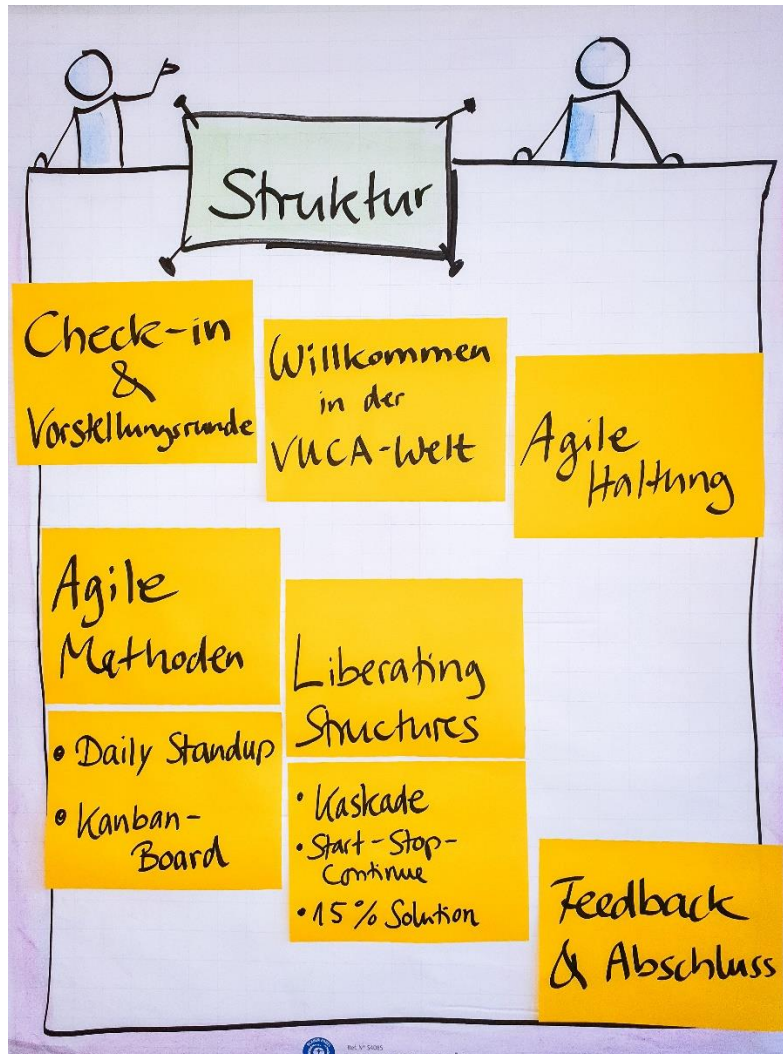 Struktur
Check-in
&
Vorstellungsrunde
Willkommen
in der
VUCA-Welt
Agile
Haltung
Agile
Methoden
• Daily Standup
• Kanban-
Board
Liberating
Structures
• Kaskade
• Start-Stop-
Continue
• 15% Solution
Feedback
& Abschluss
Ref. Nº 54085